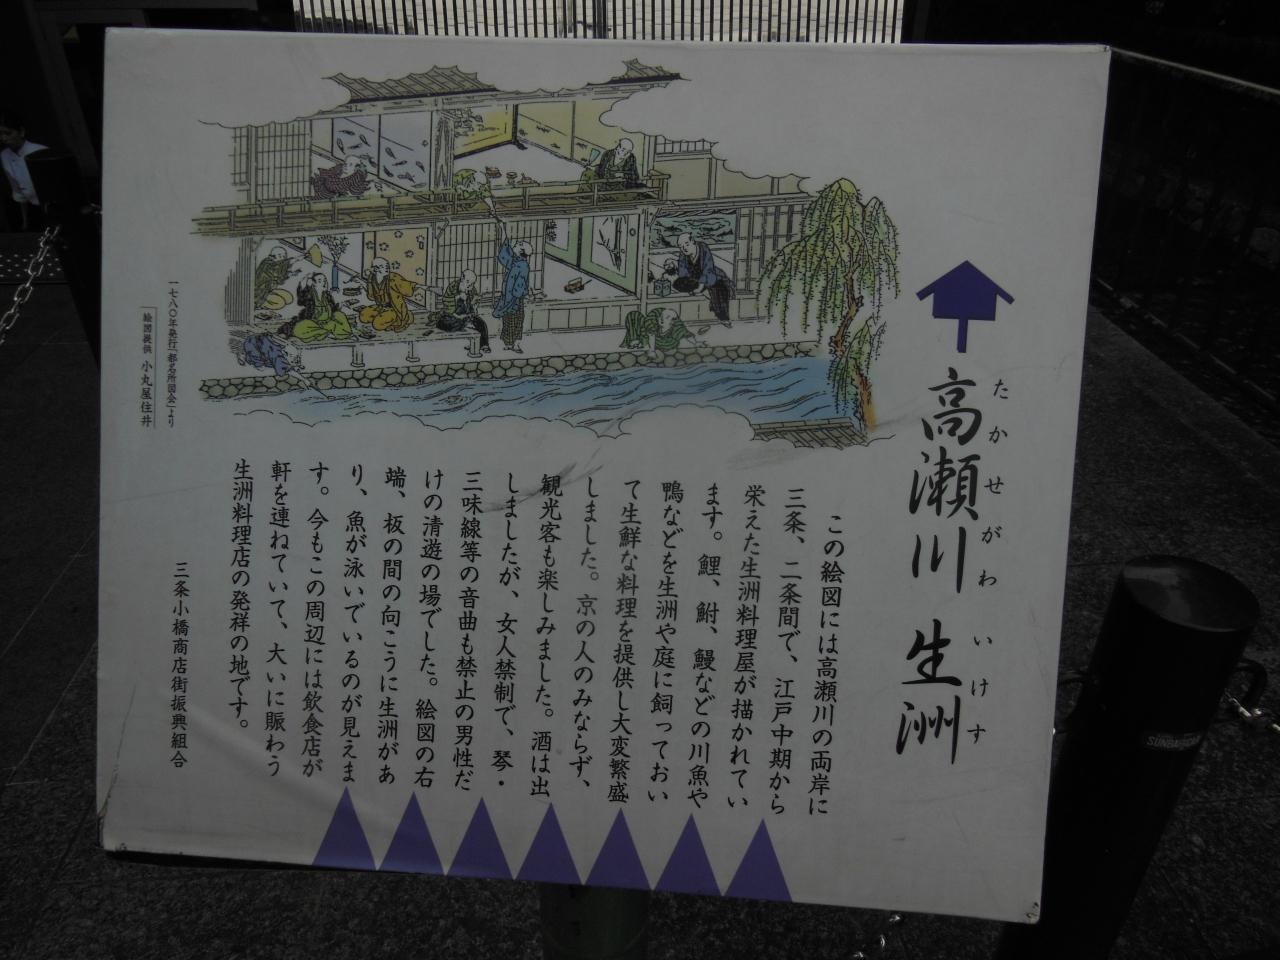 高瀬川 生洲
たかせがわ いけす
この絵図には高瀬川の両岸に
三条、二条間で、江戸中期から
栄えた生洲料理屋が描かれてい
ます。鯉、鮒、鰻などの川魚や
鴨などを生洲や庭に飼っておい
て生鮮な料理を提供し大変繁盛
しました。京の人のみならず、
観光客も楽しみました。酒は出
しましたが、女人禁制で、琴・
三味線等の音曲も禁止の男性だ
けの清遊の場でした。絵図の右
端、板の間の向こうに生洲があ
り、魚が泳いでいるのが見えま
す。今もこの周辺には飲食店が
軒を連ねていて、大いに賑わう
生洲料理店の発祥の地です。
三条小橋商店街振興組合
一七八〇年発行「都名所図会」より
絵図提供 小丸屋住井
SUNBARRICAR